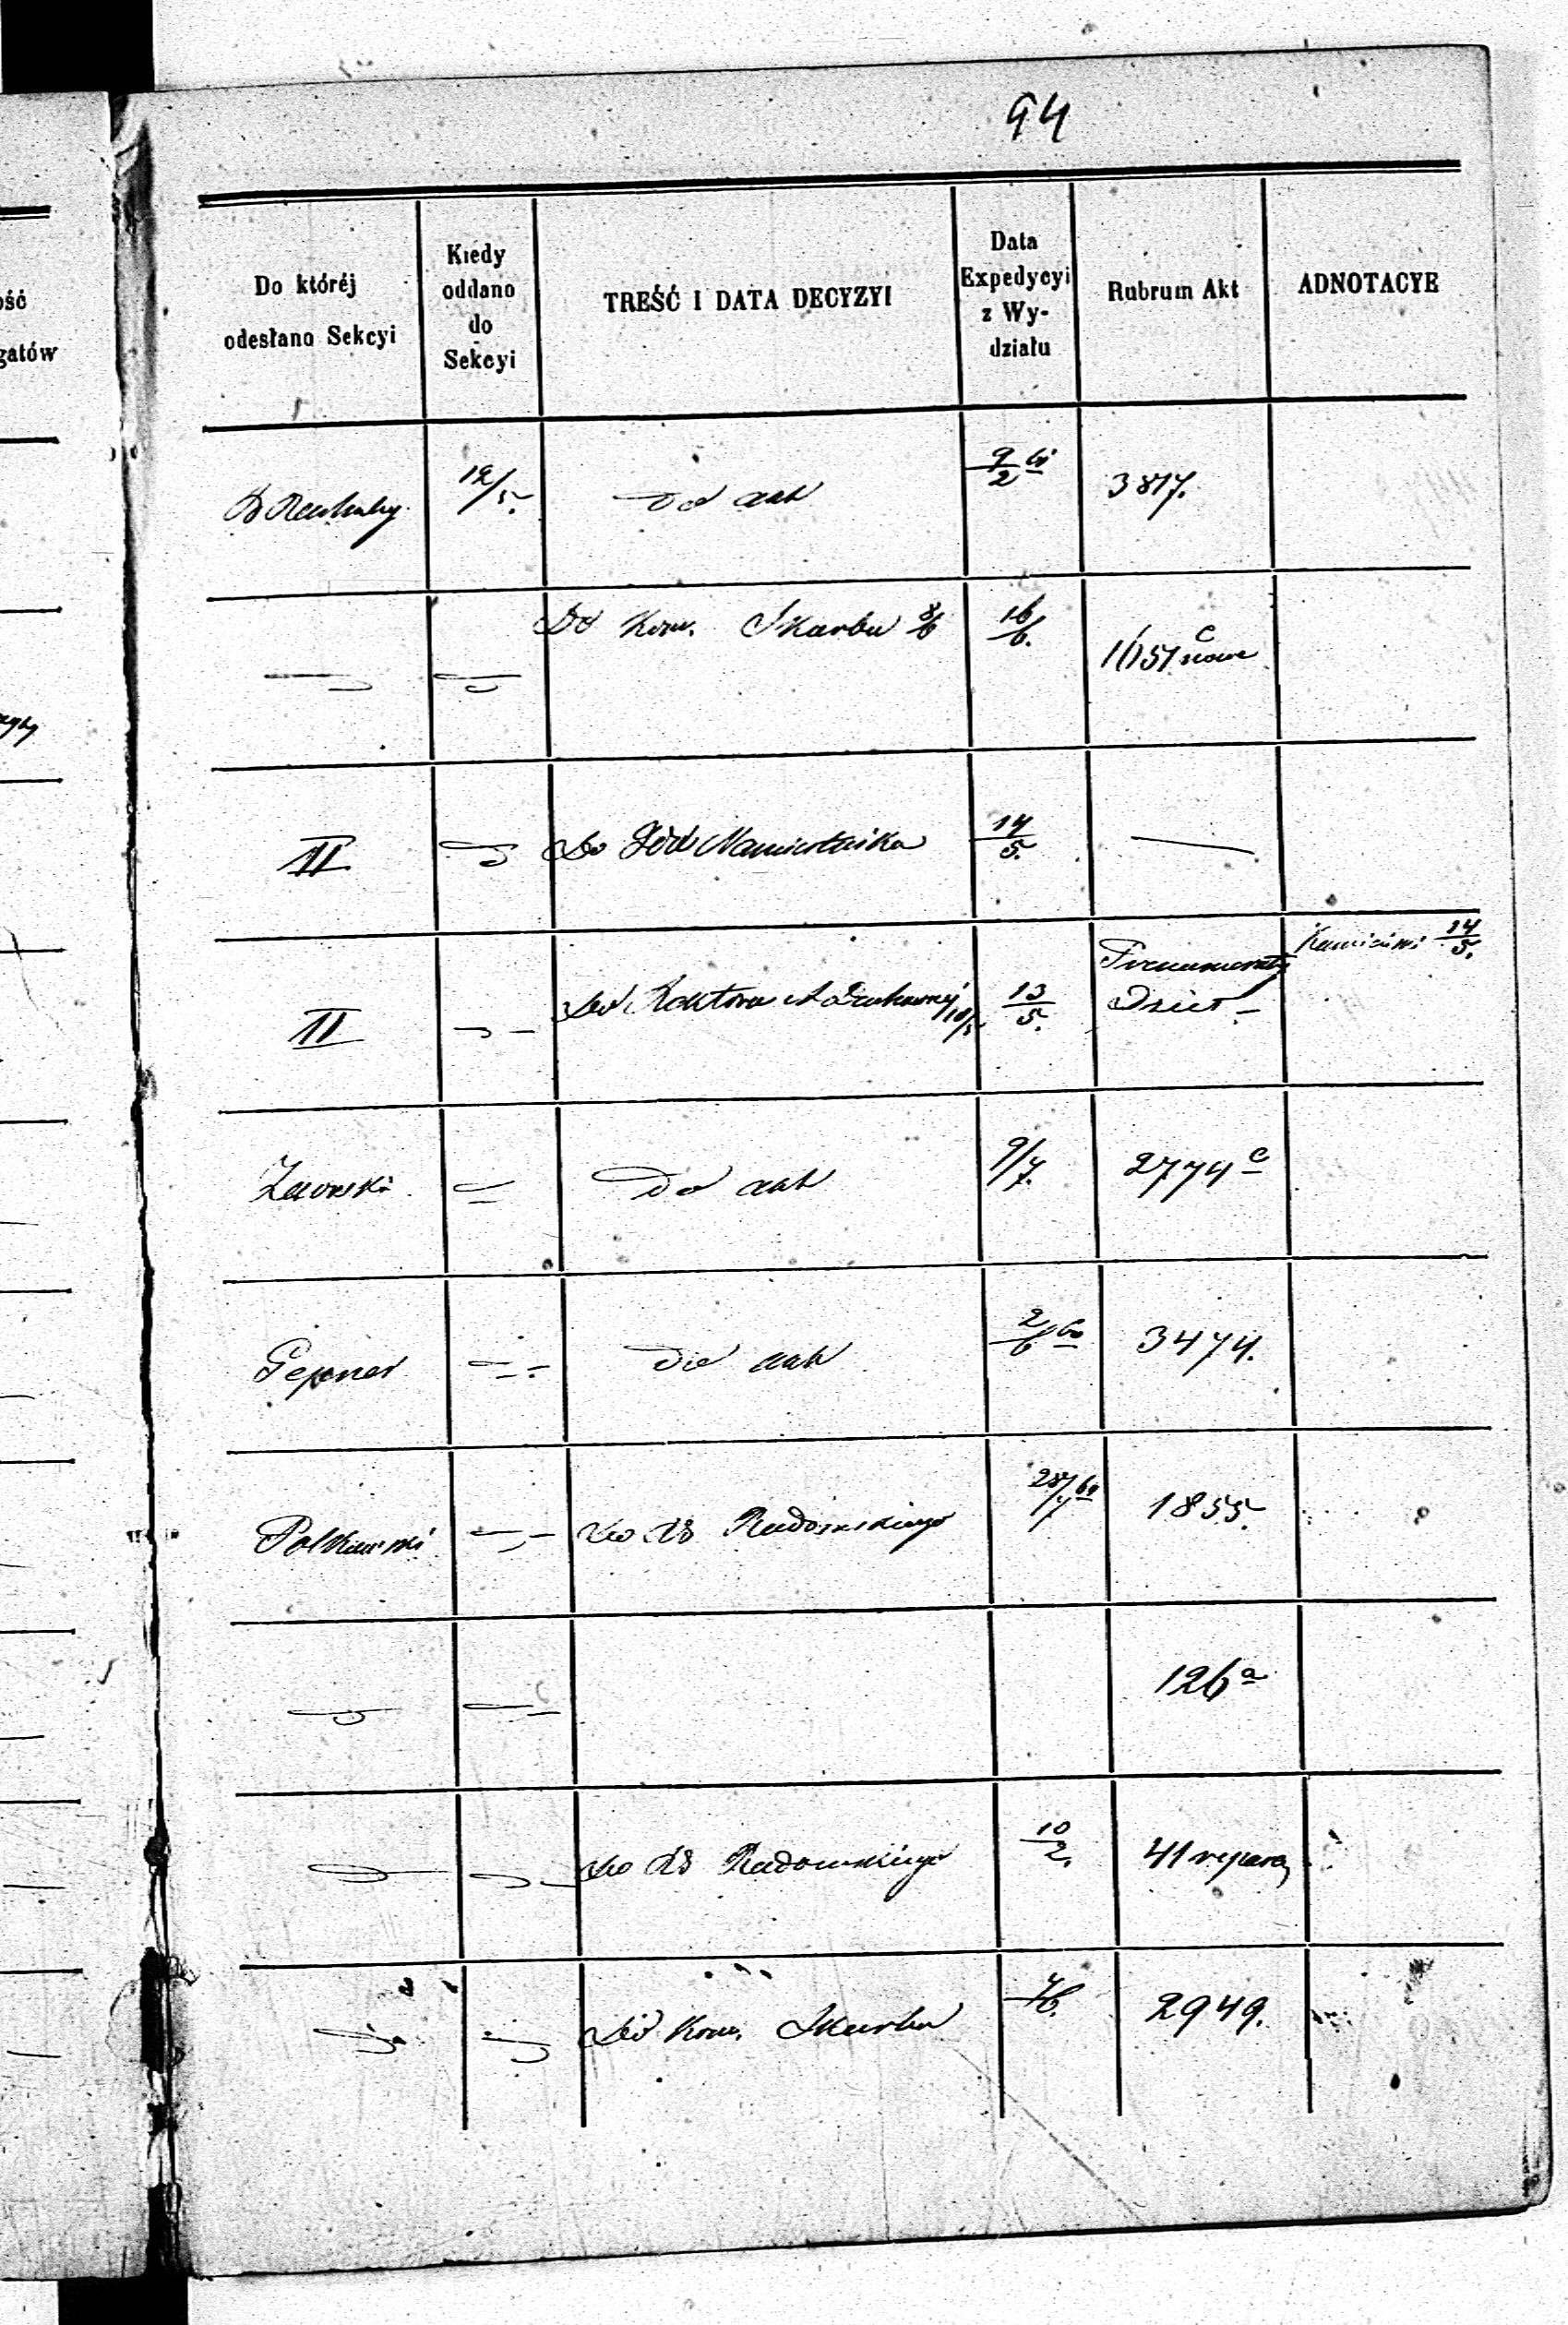 94
ość
gatów
Do któréj
odesłano Sekcyi
Kiedy
oddano
do
Sekcyi
TREŚĆ I DATA DECYZYI
Data
Expedycyi
z Wy-
działu
Rubrum Akt
ADNOTACYE
12/5. do akt 9/2 61 3817.
Do Kom. Skarbu 8/6 16/6. 1051 c nowe
II do Namiestnika 14/5.
II do 10/5 13/5. Prenumeraty Dzieł Kamiński 14/5.
Zaworski do akt 9/7. 2774 c
Pepner do akt 2/6 60 3474.
Polkowski do Radomskiego 28/7 60 1855.
126 a
do Radomskiego 10/2. 41
do Kom. Skarbu 7/6. 2949.